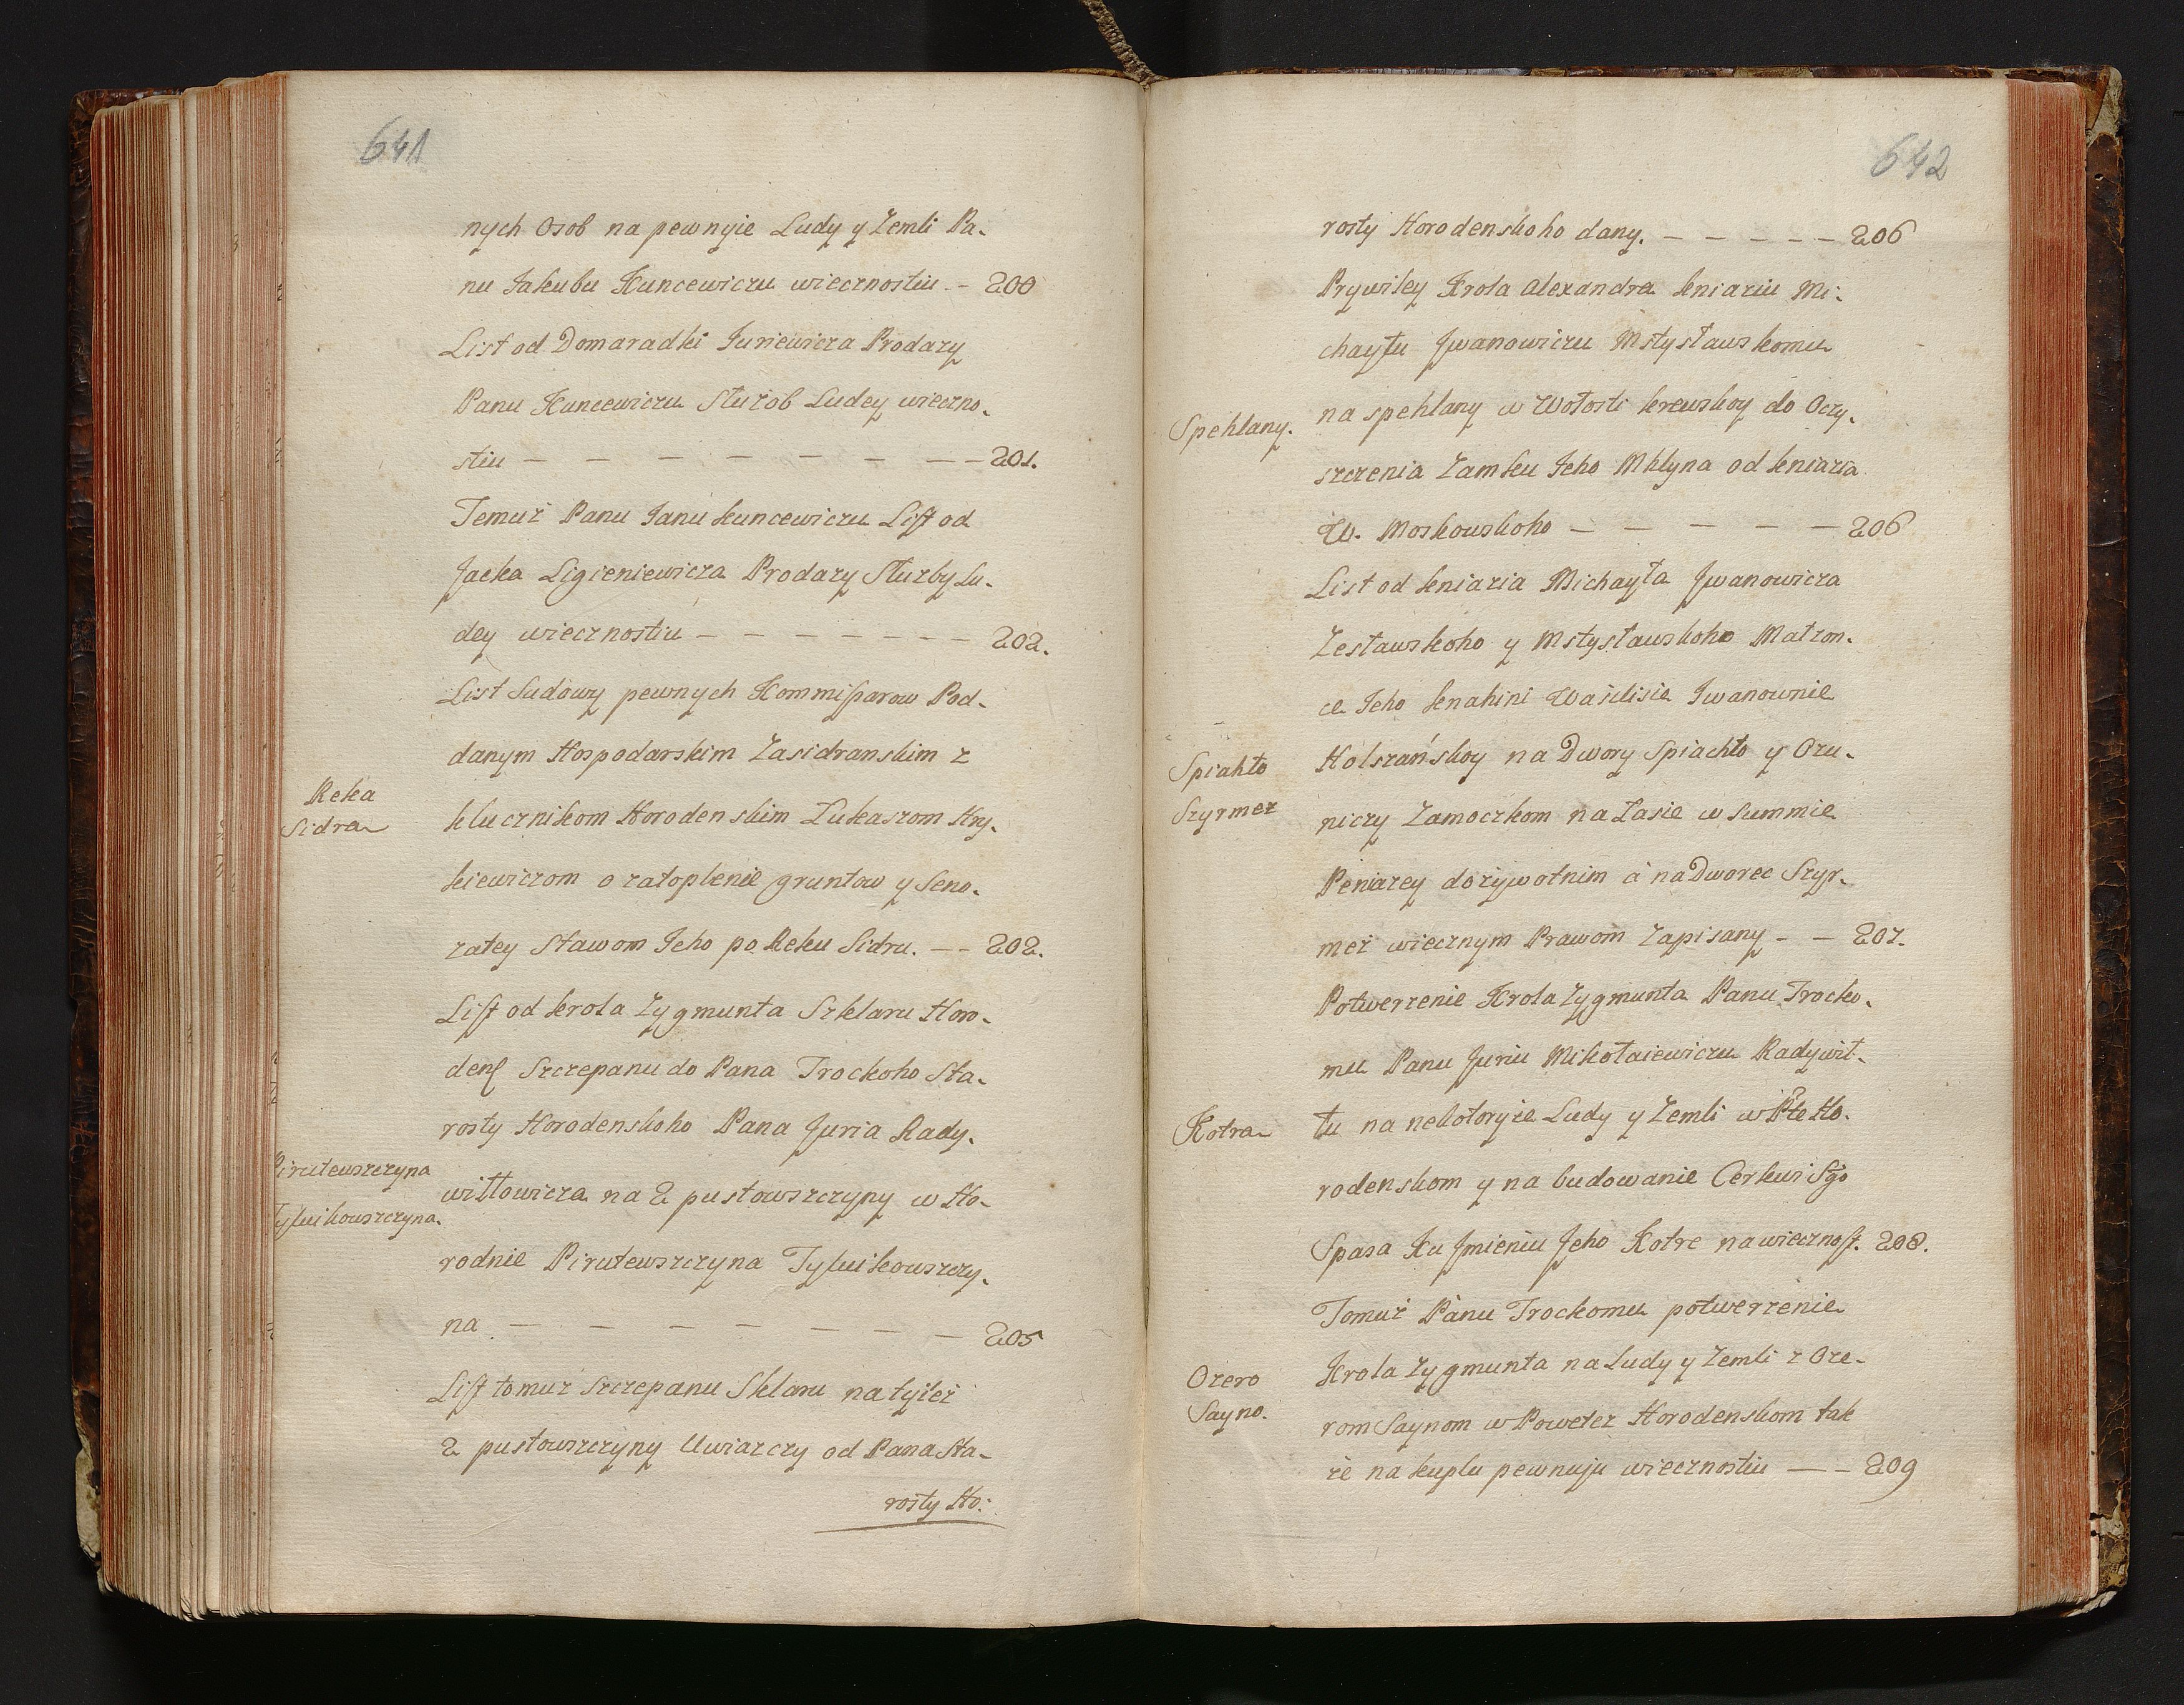 641
nych Osob na pewnyie Ludy y Zemli Pa-
nu Jakubu Kuncewiczu wiecznostiu - 200
List od Domaradki Juriewicza Prodaży
Panu Kuncewiczu Służob Ludey wieczno-
stiu — — — — — — — 201.
Temuż Panu Janu kuncewiczu List od
Jacka Ligieniewicza Prodaży Służby Lu-
dey wiecznostiu — — — — — — — 202.
List Sudowy pewnych Kommissarow Pod-
danym Hospodarskim Zasidranskim z
Reka
Sidra
klucznikom Horodenskim Łukaszom Hry-
kiewiczom o zatoplenie gruntow y Seno-
żatey Stawom Jeho po Reku Sidru. — - 202.
List od krola Zygmunta Szklaru Horo-
dens Szczepanu do Pana Trockoho Sta-
rosty Horodenskoho Pana Juria Rady-
Pirutewszczyna
wiłłowicza na 2 pustowszczyny w Ho-
Tyluikowszczyna.
rodnie Pirutewszczyna Tyluikowszczy-
na — — — — — — — 205
List tomuż Szczepanu Sklaru na tyież
2 pustowszczyny Uwiazczy od Pana Sta-
rosty Ho:
642
rosty Horodenskoho dany. — — — — — 206
Prywiley Krola Alexandra kniaziu Mi-
chayłu Jwanowiczu Mstysławskomu
Spehlany.
na spehlany w Wołosti krewskoy do Oczy-
szczenia Zamku Jeho Mhlyna od kniazia
W. Moskowskoho — — — — — 206
List od kniazia Michayła Jwanowicza
Zesławskoho y Mstysławskoho Małżon-
ce Jeho knahini Wasilisie Iwanownie
Spiahło
Holszańskoy na Dwory Spiachło y Ozu-
Szyrmeż
niczy Zamoczkom na Łasie w Summie
Peniazey dożywotnim á na Dworec Szyr-
meż wiecznym Prawom Zapisany - — 207.
Potwerżenie Krola Zygmunta Panu Trocko-
mu Panu Juriu Mikołaiewiczu Radywił-
Kotra
łu na nekotoryie Ludy y Zemli w Pte Ho-
rodenskom y na budowanie Cerkwi Sgo
Spasa Ku Jmieniu Jeho Kotre na wiecznost. 208.
Tomuż Panu Trockomu potwerżenie
Ozero
Krola Zygmunta na Ludy y Zemli z Oze-
Sayno.
rom Saynom w Poweteż Horodenskom tak
że na kuplu pewnuju wiecznostiu — - 209